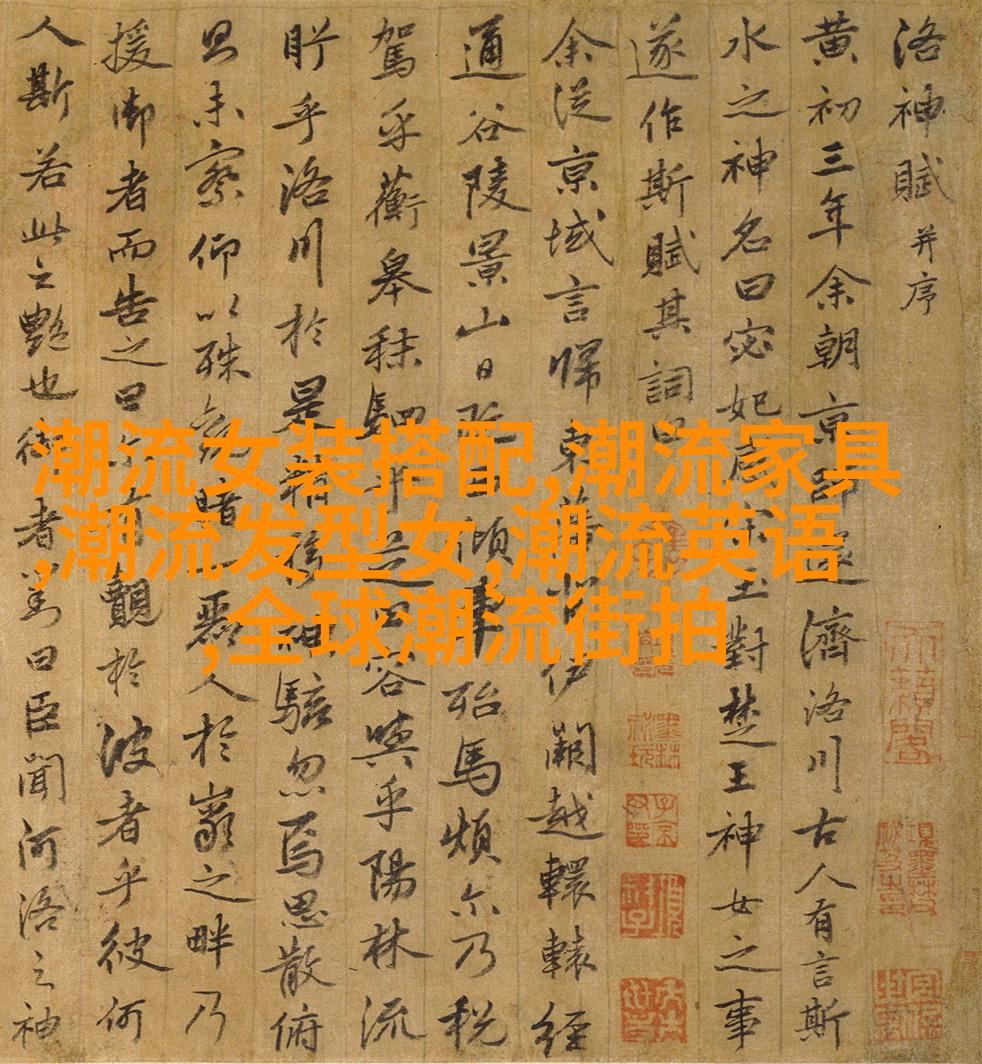 洛神賦并序
黄初三年余朝京師還濟洛川古人有言斯
水之神名曰宓妃感宋玉對楚王神女之事
遂作斯賦其詞曰
余從京域言歸東藩背伊闕越轘轅經
通谷陵景山日既西傾車殆馬煩尒乃税
駕乎蘅皋秣駟乎芝田容與乎陽林流
眄乎洛川於是精移神駭忽焉思散俯
則未察仰以殊觀睹一麗人於巖之畔乃
援御者而告之曰尒有覿於彼者乎彼何
人斯若此之艷也御者對曰臣聞河洛之神
潮流女装搭配,潮流家具
,潮流发型女,潮流英语
,全球潮流街拍